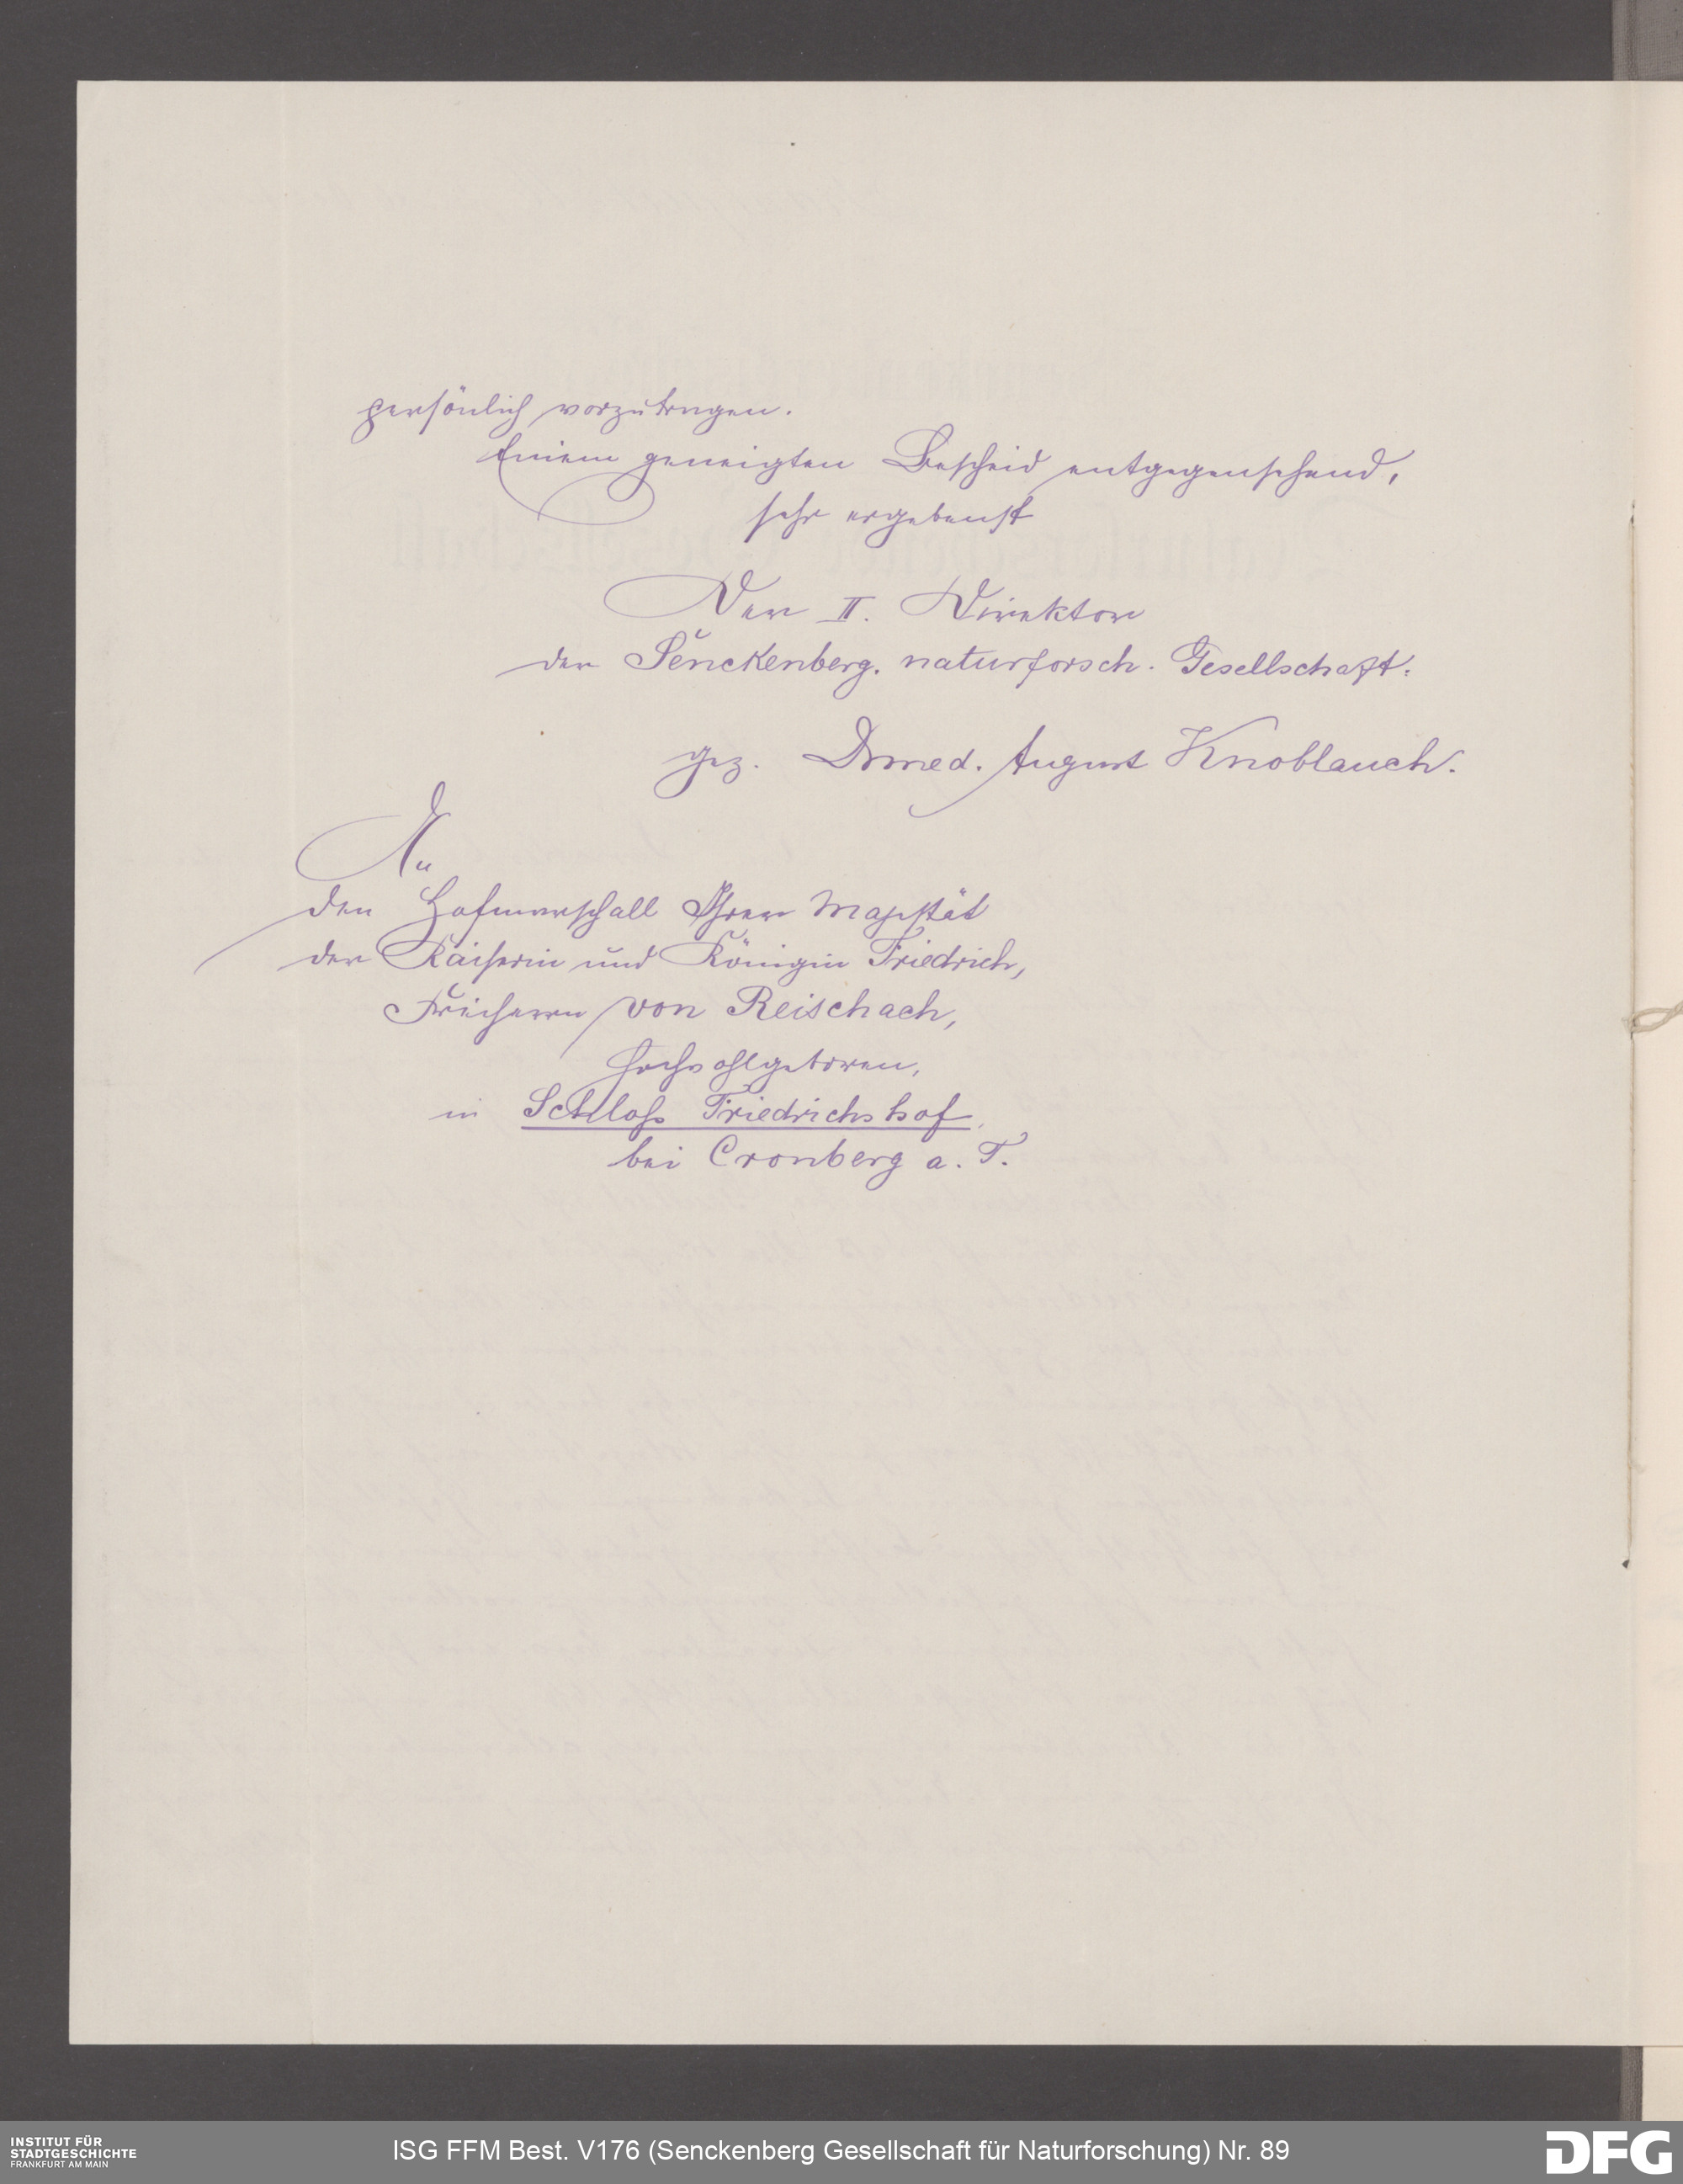 persönlich vorzutragen.
Einem geneigten Bescheid entgegensehend,
sehr ergebenst
Der II. Direktor
der Senckenberg. naturforsch. Gesellschaft.
gez. Dr med. August Knoblauch.
An
den Hofmarschall Ihrer Majestät
der Kaiserin und Königin Friedrich,
Freiherrn von Reischach,
Hochwohlgeboren,
in Schloß Friedrichshof,
bei Cronberg a. T.
INSTITUT FÜR
STADTGESCHICHTE
FRANKFURT AM MAIN
ISG FFM Best. V176 (Senckenberg Gesellschaft für Naturforschung) Nr. 89
DFG